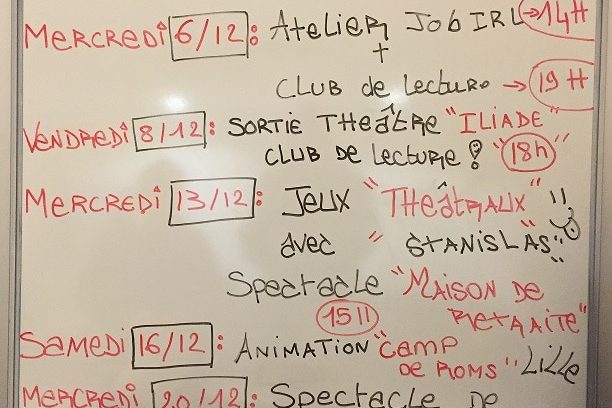 MERCREDI 6/12 : ATELIER JOB IRL → 14H
+
CLUB de Lecture → 19H
VENDREDI 8/12 : SORTIE THEÂTRE "ILIADE"
CLUB DE LECTURE ! "18h"
MERCREDI 13/12 : JEUX "THEÂTRAUX" !!
avec "STANISLAS"
Spectacle "MAISON DE
RETRAITE"
SAMEDI 16/12 : ANIMATION "CAMP
DE ROMS" Lille
MERCREDI 20/12 : Spectacle DE